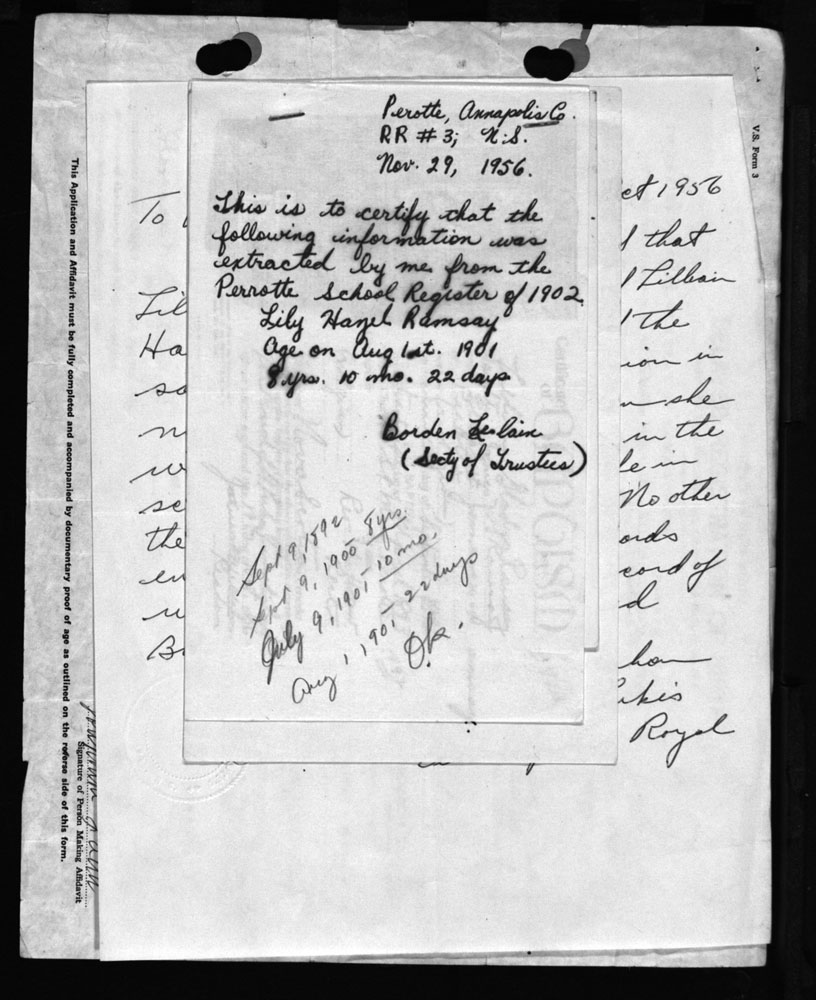 Perotte, Annapolis Co.
RR #3; N.S.
Nov. 29, 1956.
This is to certify that the
following information was
extracted by me from the
Perrotte School Register of 1902.
Lily Hazel Ramsay
Age on Aug 1st. 1901
8 yrs. 10 mo. 22 days
Borden
(Secty of Trustees)
Sept 9, 1892
Sept 9, 1900 8 yrs.
July 9, 1901 - 10 mo.
Aug 1, 1901 - 22 days
Ok.
To
Lil
Ha
so
n
w
sc
the
en
u
B
ct 1956
that
Lillian
the
ion in
she
in the
le in
No other
ords
cord of
d
Royal
V.S. Form 3
This Application and Affidavit must be fully completed and accompanied by documentary proof of age as outlined on the reverse side of this form.
Signature of Person Making Affidavit